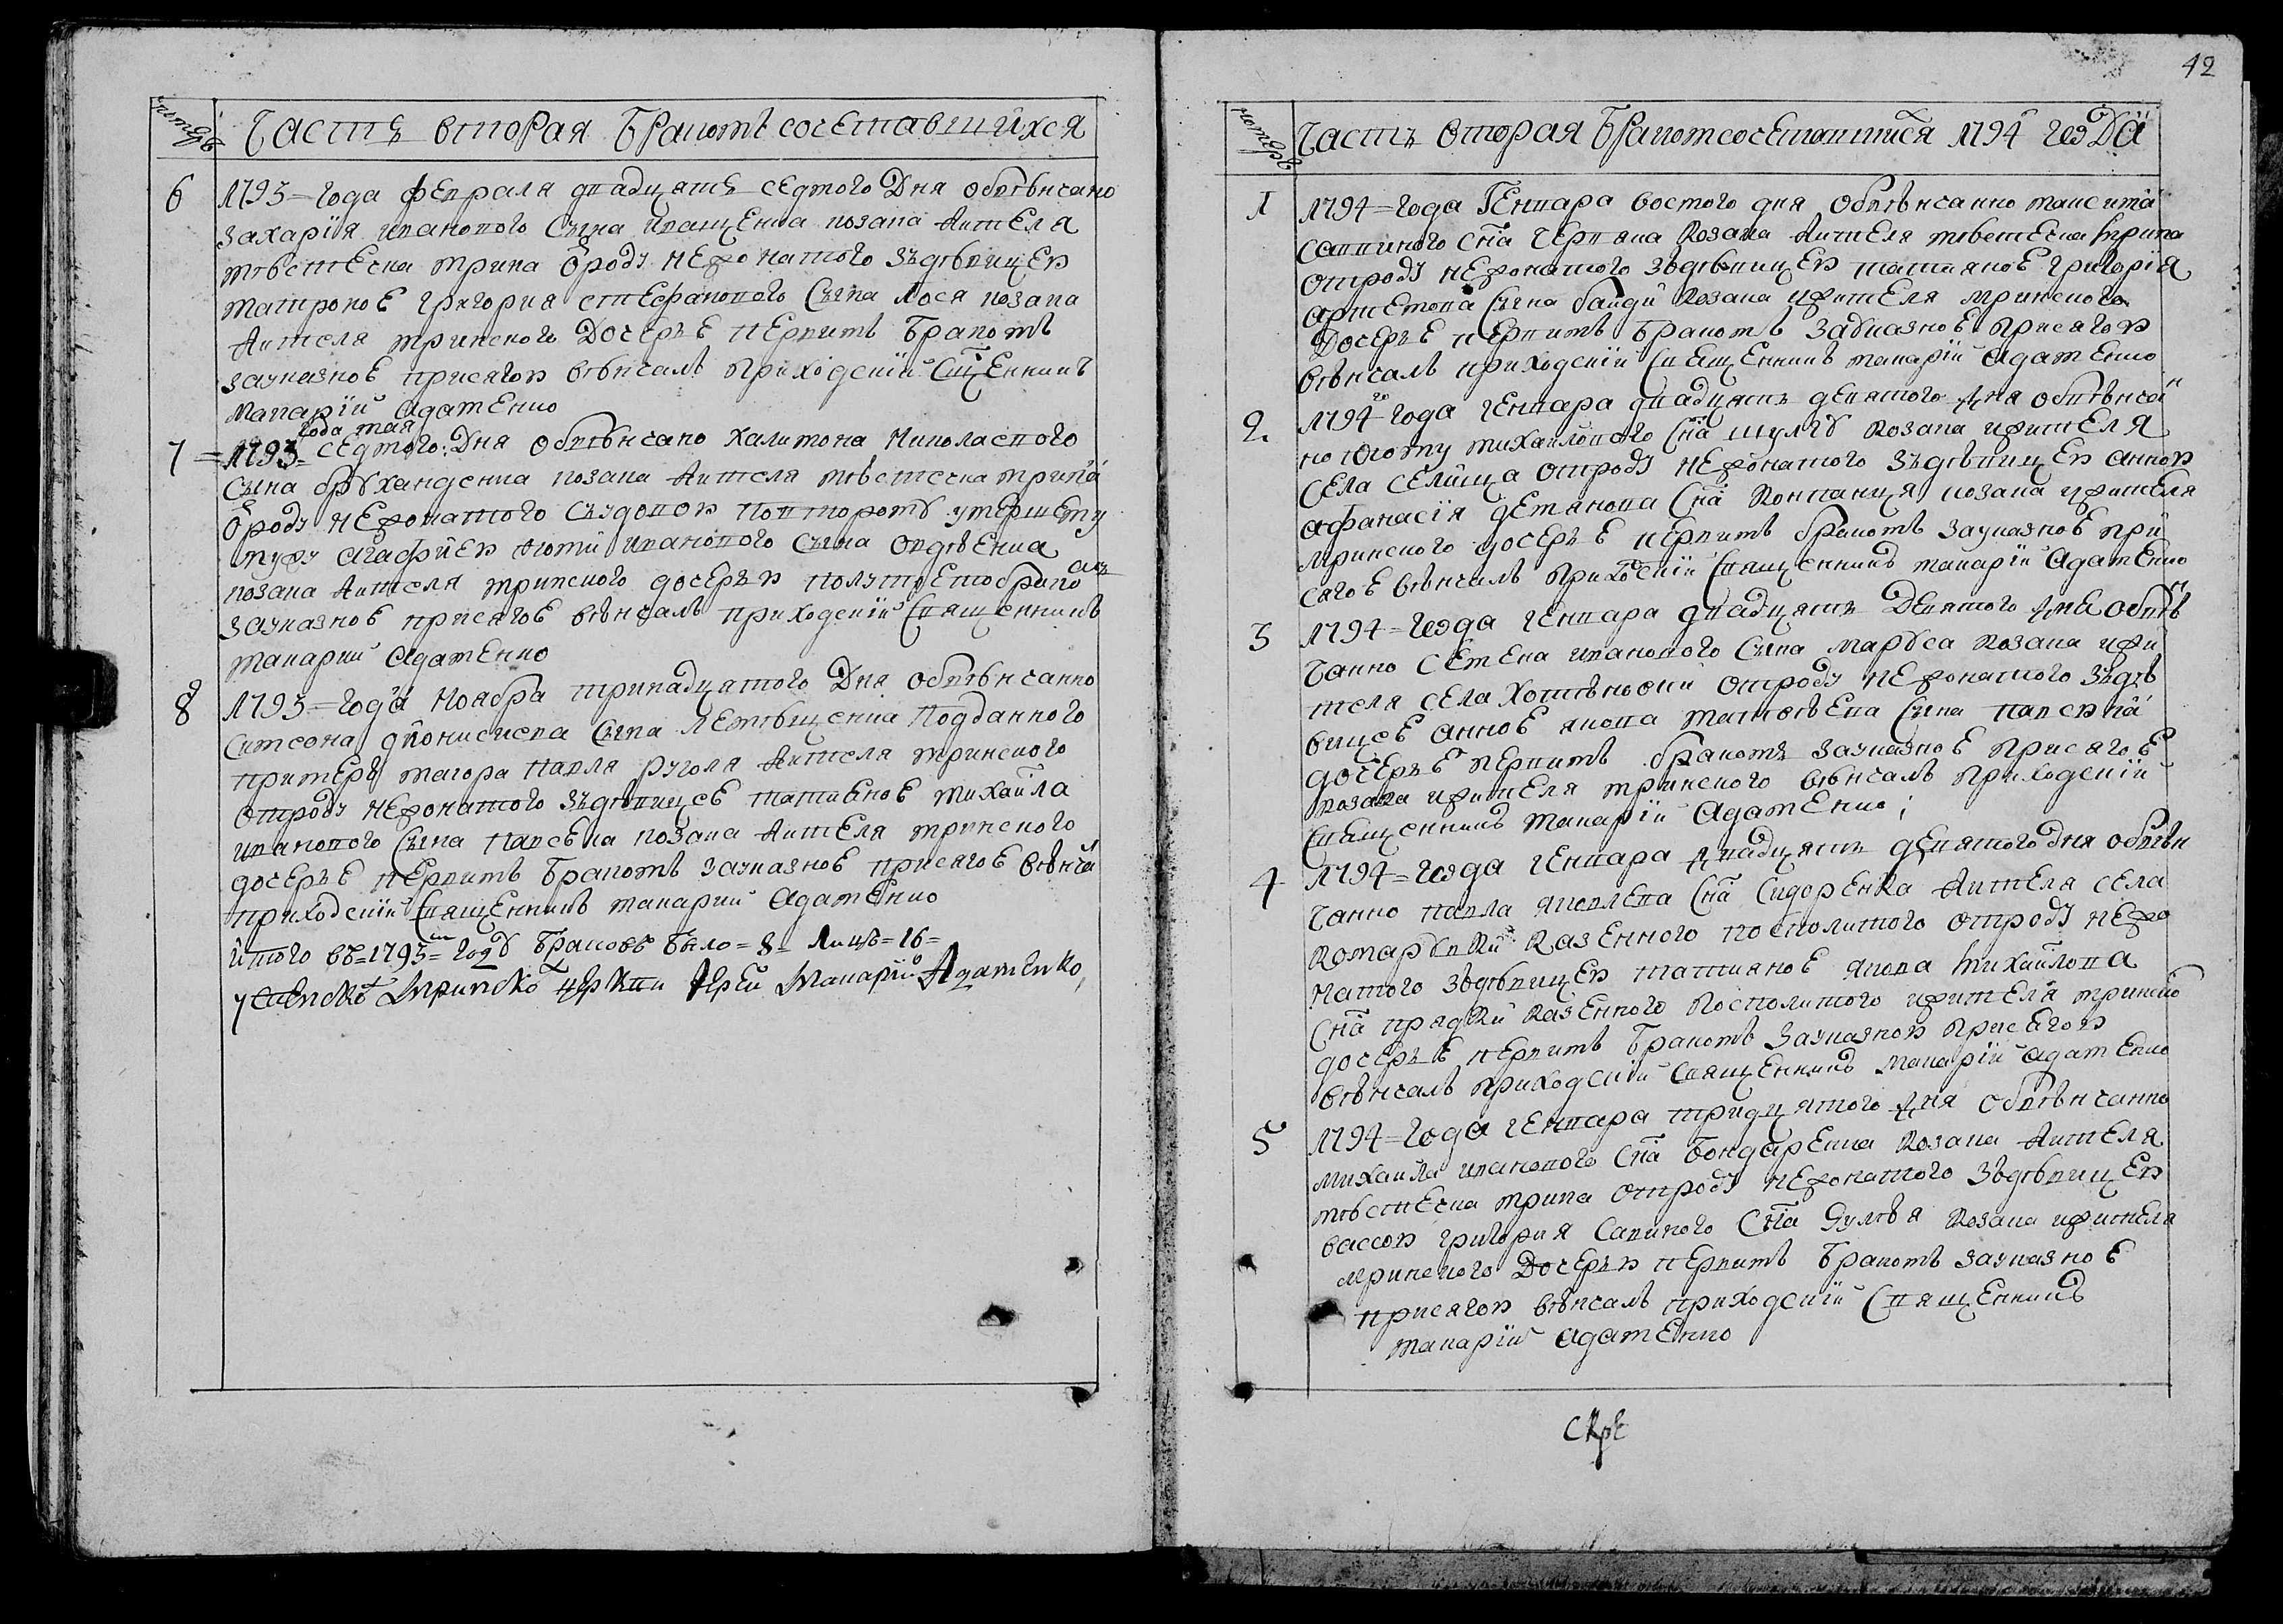 номеръ
Часть вторая бракомъ сочетавшихся
6
1793 = года февраля двадцать седмого дня обвѣнчано
Захарія Иванового сына Иващенка козака жителя
мѣстечка Мрина отроду неженатого зъдѣвицею
матроною Григория Стефанового сына Лося козака
жителя мринского дочерью первимъ бракомъ
зауказною присягою вѣнчалъ приходскій Сщенникъ
Макарїй Адаменко
года мая
7 = 1793 = седмого: дня обвѣнчано Халимона Николаевого
сына козака жителя мѣстечка Мрина
отроду неженатого съудовою повторомъ умершему
мужу Агафиею Иванового сына
козака жителя мринского дочерью
зауказною присягою вѣнчалъ приходскій Священникъ
Макарий Адаменко
8
1793 = года Ноября тринадцатого дня обвѣнчанно
Симеона дионисиева сына подданного
примеръ маіора Павла Руголя жителя мринского
отроду неженатого зъдѣвицею татияною Михайла
Иванового сына козака жителя мринского
дочерью первимъ бракомъ зауказною присягою вѣнча
приходскій Священникъ Макарий Адаменко
итого въ = 1793 = году браковъ было = 8 = лицъ = 16 =
успенско мринско церкви Іерей Макарїй Адаменко,
42
номеръ
Часть вторая бракомсочетавшися 1794 года
1
1794 = года Генвара востого дня обвѣнчанно Максима
Саввиного сна Черняка козака жителя мѣстечка Мрина
отроду неженатого зъдѣвицею татияною Григорія
Артемова сына козака жителя мринского
дочерью первимъ бракомъ зауказною присягою
вѣнчалъ приходскій Священникъ Макарїй Адаменко
2.
1794го года генвара двадцять девятого дня обвѣнчан
но Михайлового сна Шулги козака жителя
села Селища отроду неженатого зъдѣвицею анною
Афанасія Демянова сна козака жителя
мринского дочерью первимъ бракомъ зауказною при
сягою вѣнчалъ приходскій Священникъ Макарїй Адаменко
3
1794 = года генвара двадцять девятого дня обвѣн
чанно Семена Иванового сына козака жи
теля села Хотѣновки отроду неженатого зъдѣ
вицею анною Якова Матвѣева сына
дочерью первимъ бракомъ зауказною присягою
козака жителя мринского вѣнчалъ приходскій
Священникъ Макарїй Адаменко;
4
1794 = года генвара двадцять девятого дня обвѣн
чанно Павла Яковлева сна Сидоренка жителя села
Комаровки казенного посполитого отроду неже
натого зъдѣвицею татияною Якова Михайлова
сна Прядки казенного посполитого жителя мринско
дочерью первимъ бракомъ зауказною присягою
вѣнчалъ приходскій Священникъ Макарїй Адаменко
5
1794 = года генвара тридцятого дня обвѣнчанно
Михайла Иванового сна Бондаренка козака жителя
мѣстечка Мрина отроду неженатого зъдѣвицею
вассою Григория Савиного сна козака жителя
мринского дочерью первимъ бракомъ зауказною
присягою вѣнчалъ приходскій Священникъ
Макарїй Адаменко